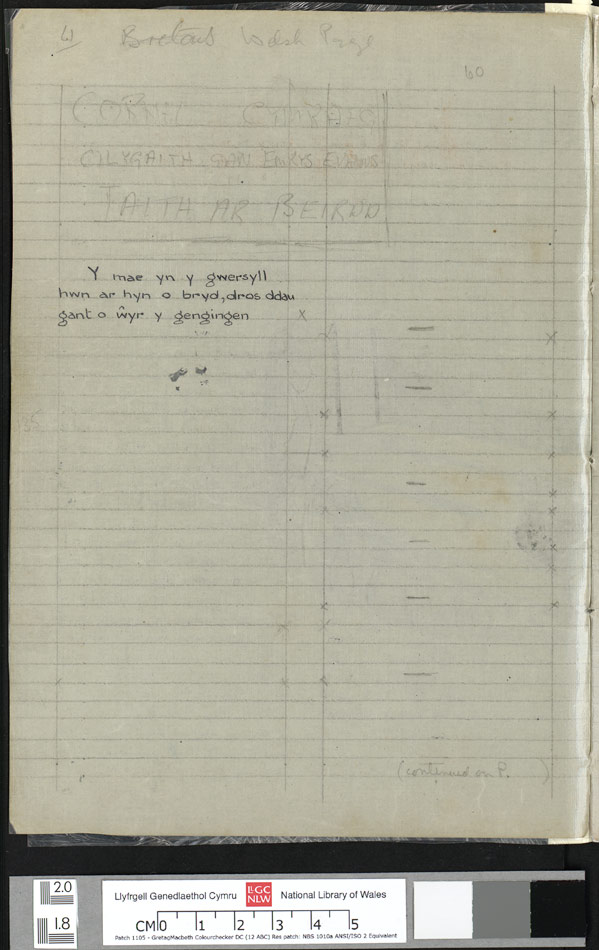 41 Welsh Page
60
CORNEL CYMRAEG
GAN EMRYS EVANS
TAITH AR
Y mae yn y gwersyll
hwn ar hyn o bryd, dros ddau
gant o ŵyr y gengingen
x
(continued on P. )
2.0
1.8
Llyfrgell Genedlaethol Cymru
LlGC
NLW
National Library of Wales
CM 0 1 2 3 4 5
Patch 1105 - GretagMacbeth Colourchecker DC (12 ABC) Res patch: NBS 1010a ANSI/ISO 2 Equivalent